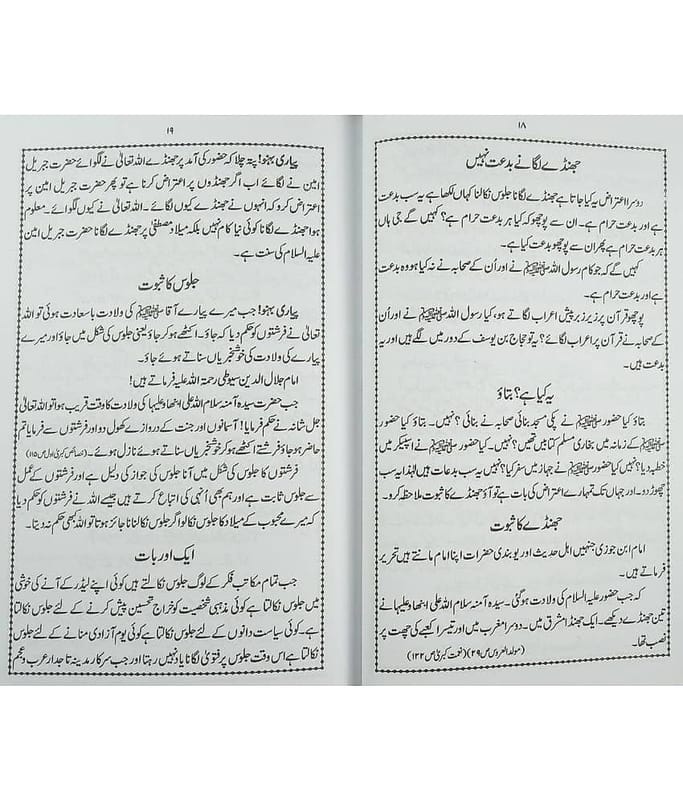 ۱۸
جھنڈے لگانے بدعت نہیں
دوسرا اعتراض یہ کیا جاتا ہے جھنڈے لگانا جلوس نکالنا کہاں لکھا ہے یہ سب بدعت
ہے اور بدعت حرام ہے۔ ان سے پوچھو کہ کیا ہر بدعت حرام ہے؟ کہیں گے جی ہاں
ہر بدعت حرام ہے پھر ان سے پوچھو بدعت کیا ہے۔
کہیں گے کہ جو کام رسول اللہ ﷺ نے اور اُن کے صحابہ نے نہ کیا ہو وہ بدعت
ہے اور بدعت حرام ہے۔
پوچھو قرآن پر زیر زبر پیش اعراب لگاتے ہو، کیا رسول اللہ ﷺ نے اور اُن
کے صحابہ نے قرآن پر اعراب لگائے؟ یہ تو حجاج بن یوسف کے دور میں لگے ہیں اور یہ
بدعت ہیں۔
یہ کیا ہے؟ بتاؤ
بتاؤ کیا حضور ﷺ نے پکی مسجد بنائی صحابہ نے بنائی؟ نہیں۔ بتاؤ کیا حضور
ﷺ کے زمانہ میں بخاری مسلم کتابیں تھیں؟ نہیں۔ کیا حضور ﷺ نے اسپیکر میں
خطبہ دیا؟ نہیں کیا حضور ﷺ نے جہاز میں سفر کیا؟ نہیں یہ سب بدعات ہیں لہٰذا یہ سب
چھوڑ دو۔ اور جہاں تک تمہارے اعتراض کی بات ہے تو آؤ جھنڈے کا ثبوت ملاحظہ کرو۔
جھنڈے کا ثبوت
امام ابن جوزی جنہیں اہل حدیث اور یوبندی حضرات اپنا امام مانتے ہیں تحریر
فرماتے ہیں۔
کہ جب حضور علیہ السلام کی ولادت ہوگئی۔ سیدہ آمنہ سلام اللہ علی ابنھا وعلیہا نے
تین جھنڈے دیکھے۔ ایک جھنڈا مشرق میں۔ دوسرا مغرب میں اور تیسرا کعبے کی چھت پر
نصب تھا۔
(مولد العروس ص ۲۹) (نعمت کبریٰ ص ۱۲۲)
۱۹
پیاری بہنو! پتہ چلا کہ حضور کی آمد پر جھنڈے اللہ تعالیٰ نے لگوائے حضرت جبریل
امین نے لگائے اب اگر جھنڈوں پر اعتراض کرنا ہے تو پھر حضرت جبریل امین پر
اعتراض کرو کہ انہوں نے جھنڈے کیوں لگائے۔ اللہ تعالیٰ نے کیوں لگوائے۔ معلوم
ہوا جھنڈے لگانا کوئی نیا کام نہیں بلکہ میلاد مصطفیٰ پر جھنڈے لگانا حضرت جبریل امین
علیہ السلام کی سنت ہے۔
جلوس کا ثبوت
پیاری بہنو! جب میرے پیارے آقا ﷺ کی ولادت با سعادت ہوئی تو اللہ
تعالیٰ نے فرشتوں کو حکم دیا کہ جاؤ۔ اکٹھے ہو کر جاؤ یعنی جلوس کی شکل میں جاؤ اور میرے
پیارے کی ولادت کی خوشخبریاں سناتے ہوئے جاؤ۔
امام جلال الدین سیوطی رحمۃ اللہ علیہ فرماتے ہیں!
جب حضرت سیدہ آمنہ سلام اللہ علی ابنھا وعلیہا کی ولادت کا وقت قریب ہوا تو اللہ تعالیٰ
جل شانہ نے حکم فرمایا! آسمانوں اور جنت کے دروازے کھول دو اور فرشتوں سے فرمایا تم
حاضر ہو جاؤ فرشتے اکٹھے ہو کر خوشخبریاں سناتے ہوئے نازل ہوئے۔ (خصائص کبریٰ اول ص ۱۱۵)
فرشتوں کا جلوس کی شکل میں آنا جلوس کی جواز کی دلیل ہے اور فرشتوں کے عمل
سے جلوس ثابت ہے اور ہم بھی اُنہی کی اتباع کرتے ہیں جیسے اللہ نے فرشتوں کو حکم دیا
کہ میرے محبوب کے میلاد کا جلوس نکالو اگر جلوس نکالنا نا جائز ہوتا تو اللہ کبھی حکم نہ دیتا۔
ایک اور بات
جب تمام مکاتب فکر کے لوگ جلوس نکالتے ہیں کوئی اپنے لیڈر کے آنے کی خوشی
میں جلوس نکالتا ہے کوئی مذہبی شخصیت کو خراج تحسین پیش کرنے کے لئے جلوس نکالتا
ہے۔ کوئی سیاست دانوں کے لئے جلوس نکالتا ہے کوئی یوم آزادی منانے کے لئے جلوس
نکالتا ہے اس وقت جلوس پر فتویٰ لگانا یاد نہیں رہتا اور جب سرکار مدینہ تاجدار عرب و عجم